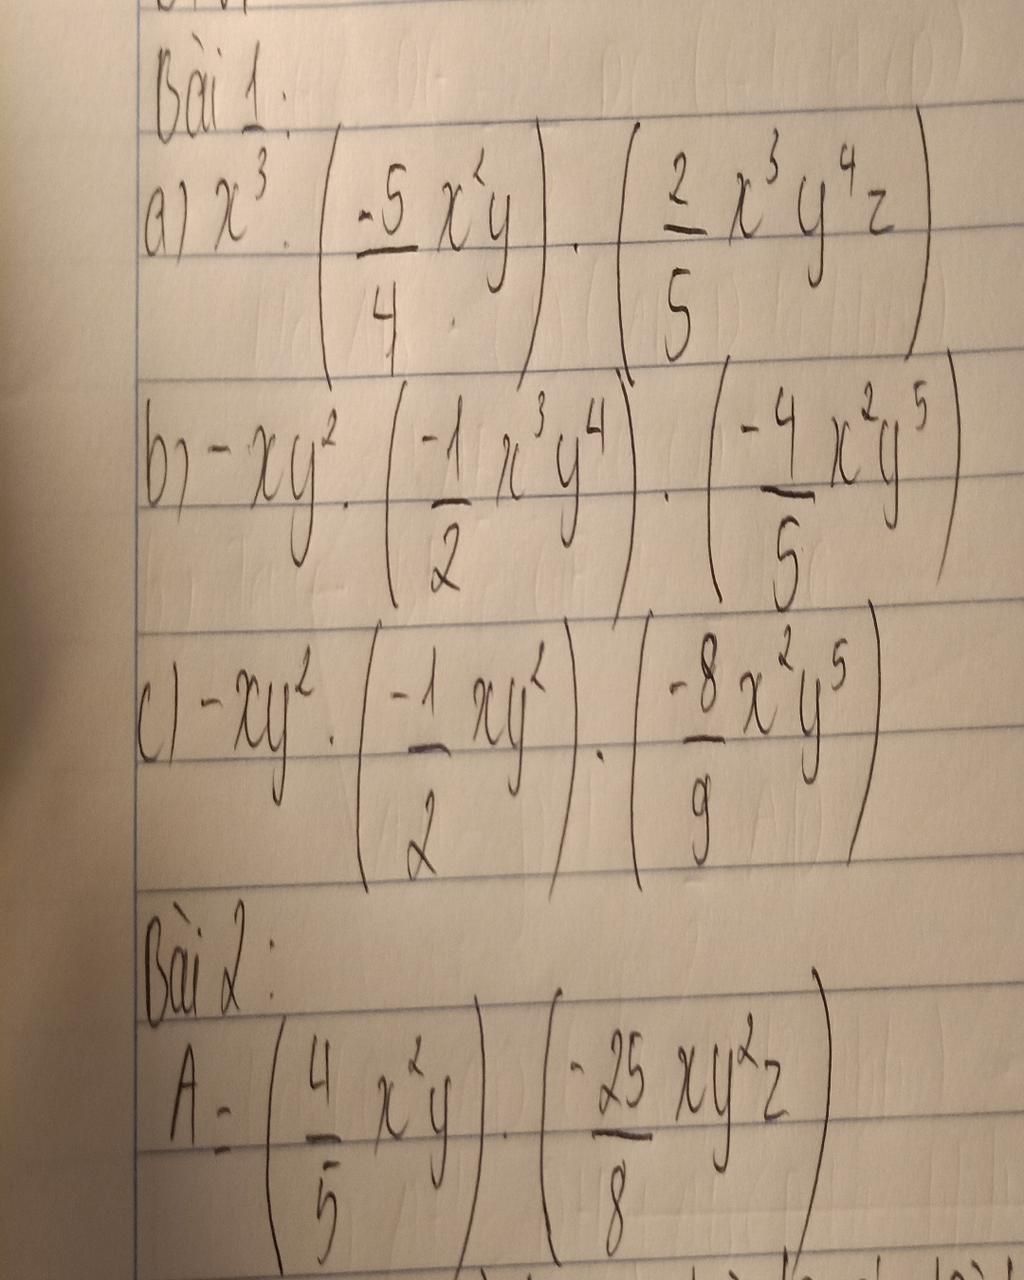 Bài 1:
a) x³ . (-5/4 x²y) . (2/5 x³y⁴z)
b) -xy² . (-1/2 x³y⁴) . (-4/5 x²y⁵)
c) -xy² . (-1/2 xy²) . (-8/9 x²y⁵)
Bài 2:
A = (4/5 x²y) . (-25/8 xy²z)